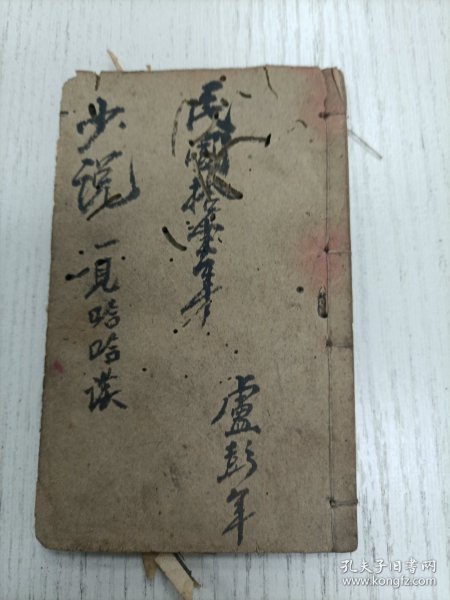 盧彭年
民國拾柒年
少説
一見哈哈
孔夫子旧书网
www.kongfz.com